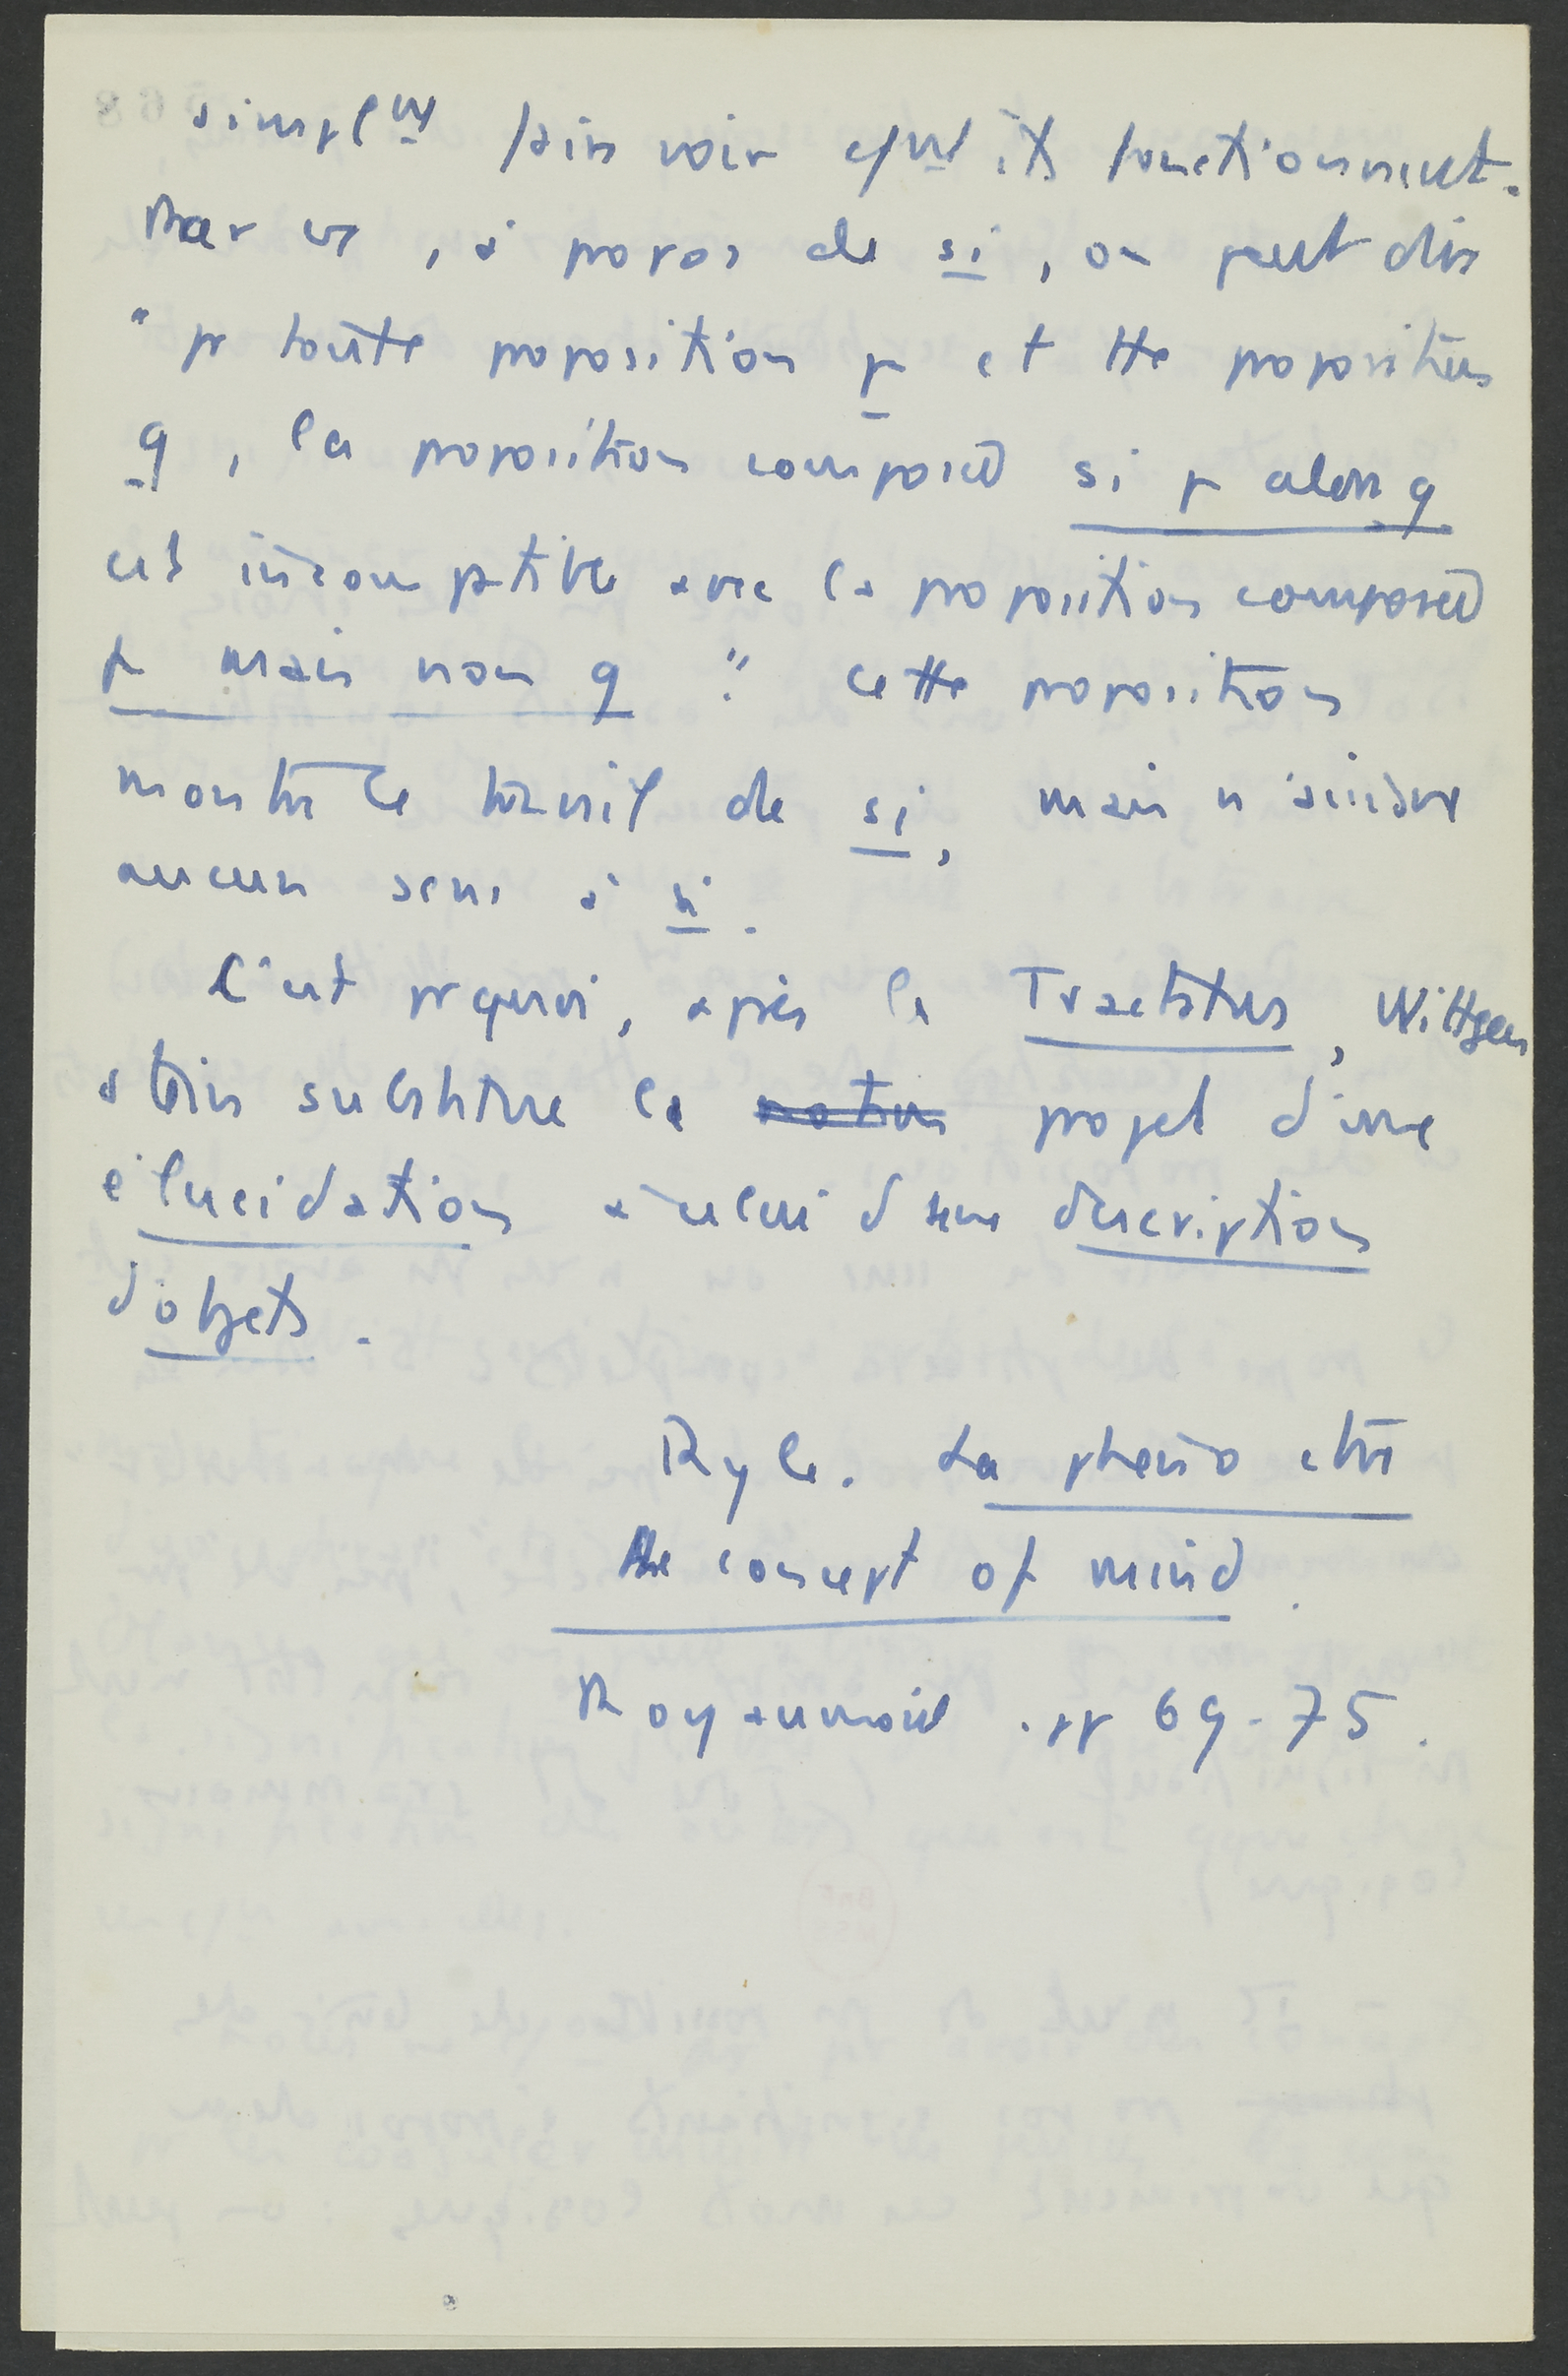 simplmt faire voir cmt ils fonctionnent.
Par ex, à propos de si, on peut dire
"pr toute proposition p et tte proposition
q, la proposition composée si p alors q
est incompatible avec la proposition composée
p mais non q". Cette proposition
montre le travail de si, mais n'assigne
aucun sens à si.
C'est pquoi, après le Tractatus, Wittgen
substitue le notion projet d'une
élucidation à celui d'une description
d'objets.
Ryle. La phéno etre
the concept of mind.
Royaumont. pp 69-75.